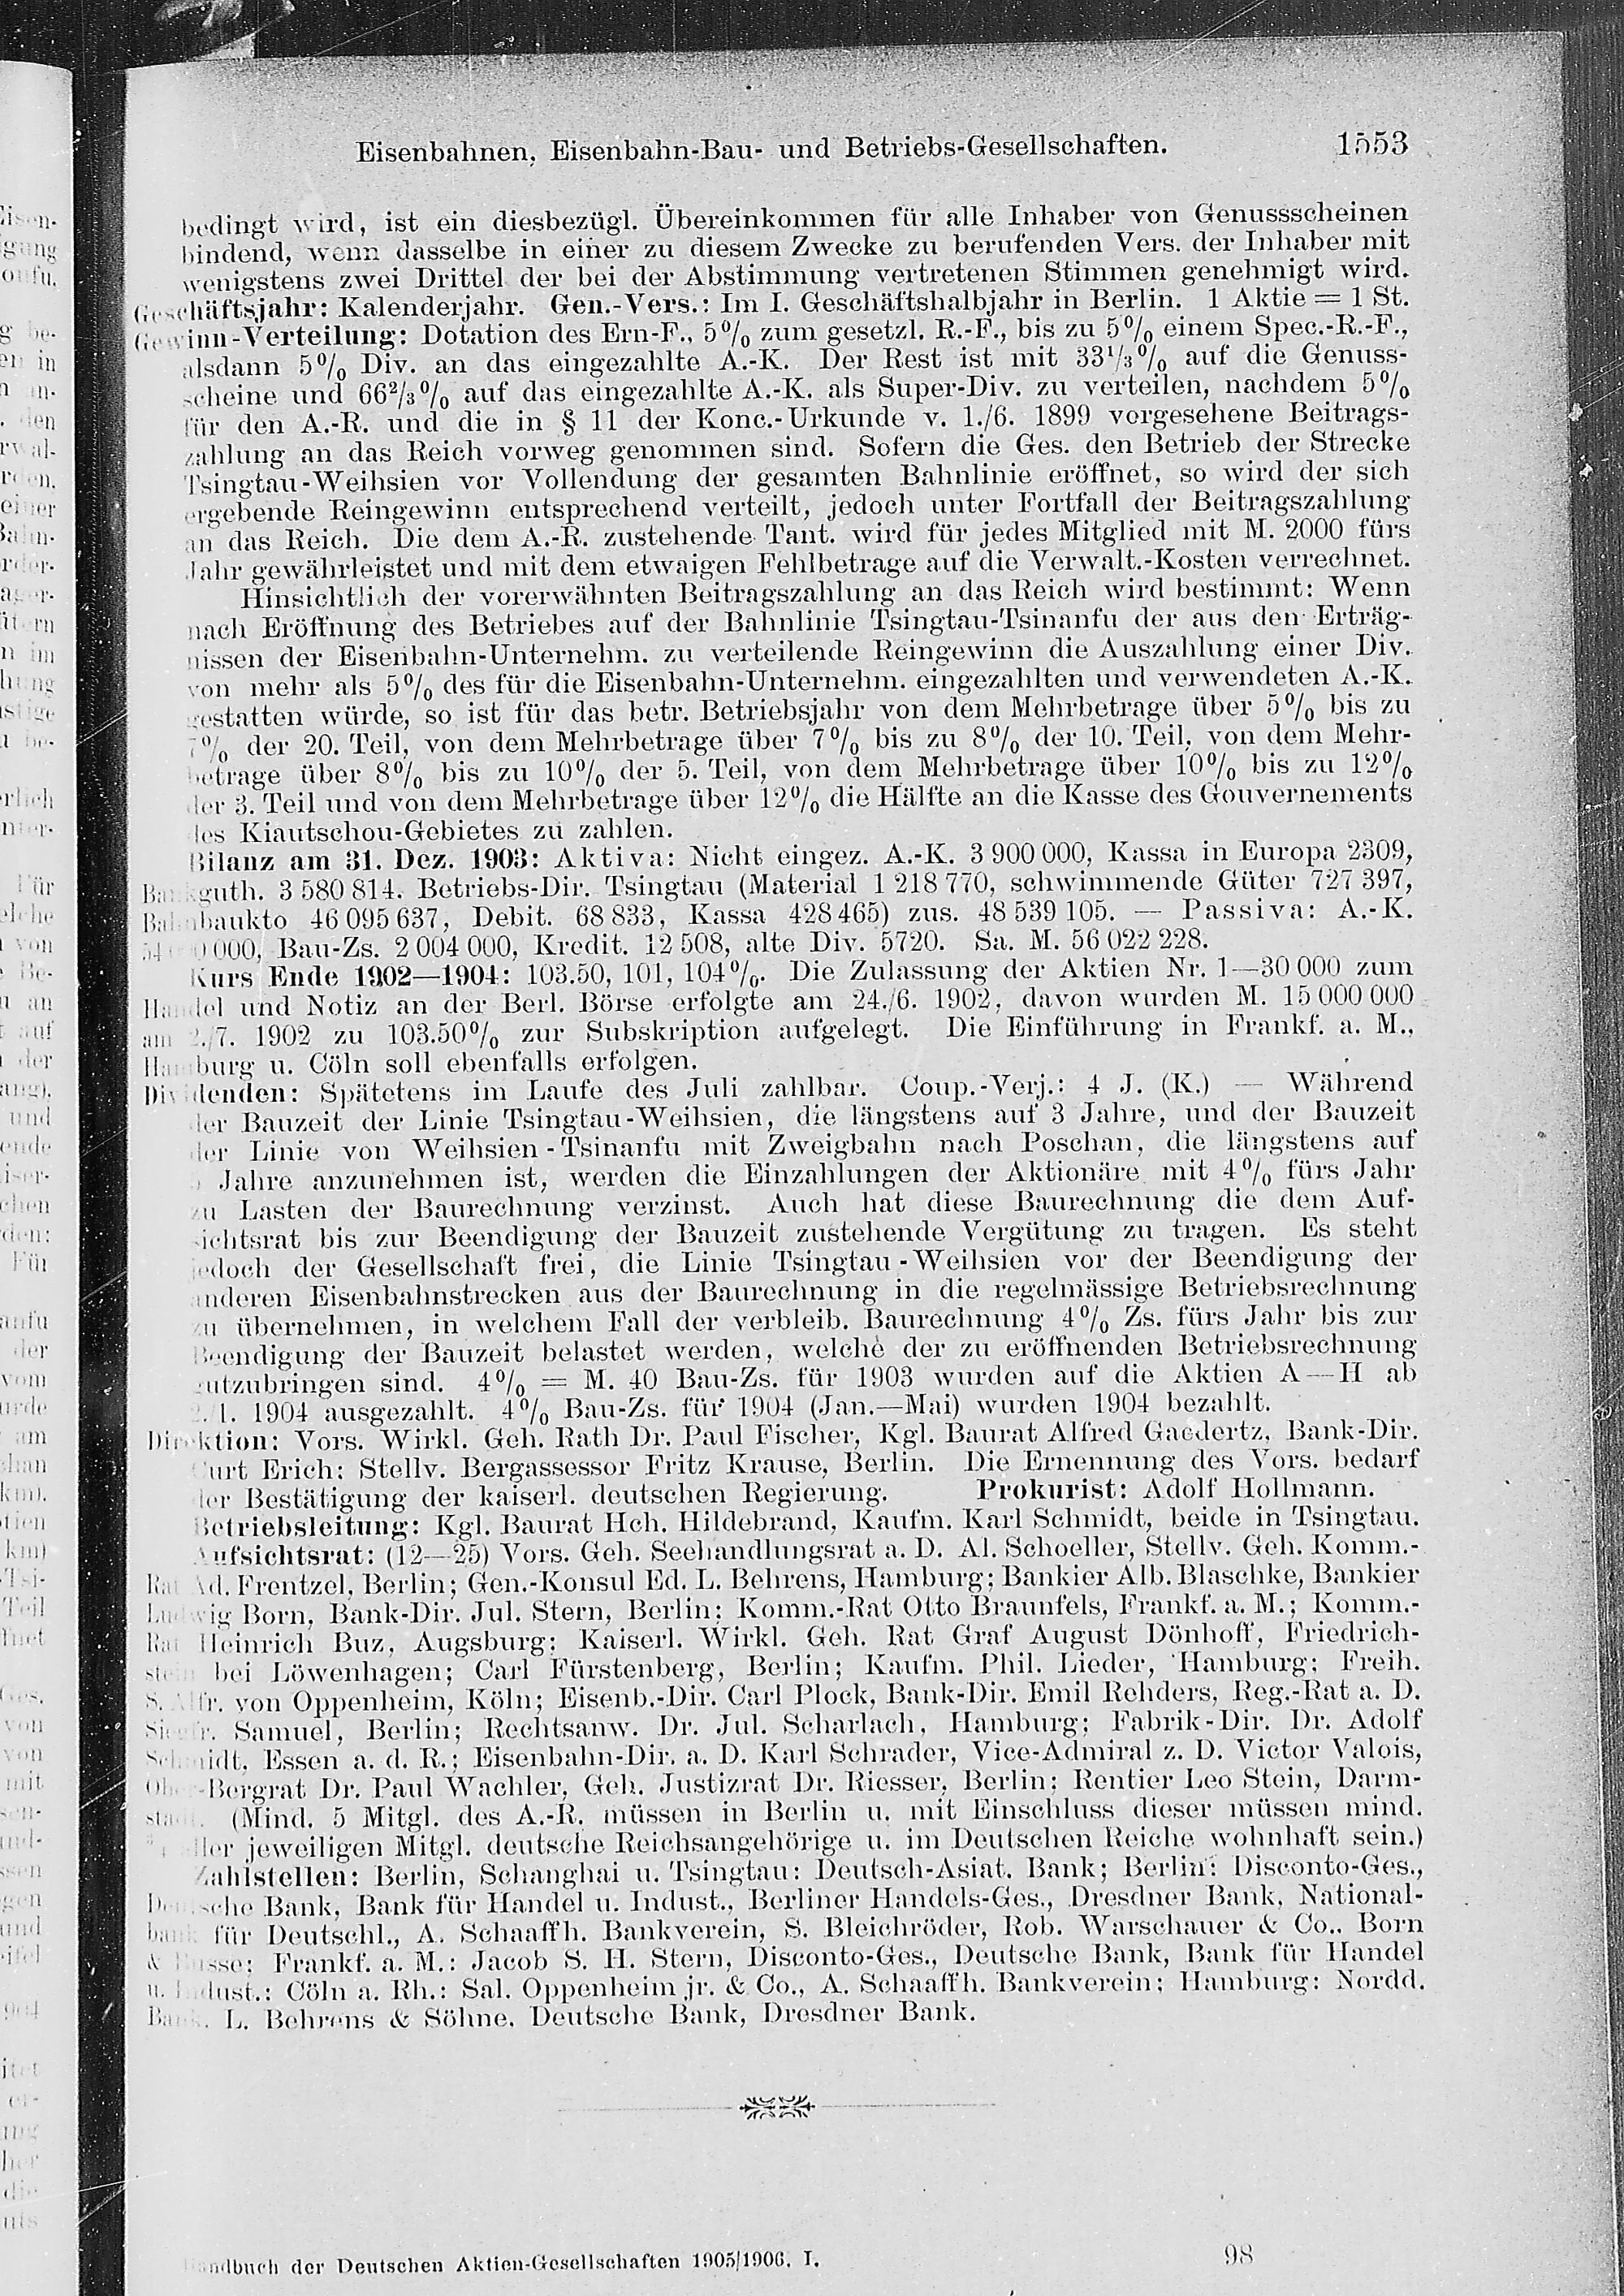 Eisenbahnen, Eisenbahn-Bau- und Betriebs-Gesellschaften. 1553
bedingt wird, ist ein diesbezügl. Übereinkommen für alle Inhaber von Genussscheinen
bindend, wenn dasselbe in einer zu diesem Zwecke zu berufenden Vers. der Inhaber mit
wenigstens zwei Drittel der bei der Abstimmung vertretenen Stimmen genehmigt wird.
Geschäftsjahr: Kalenderjahr. Gen.-Vers.: Im I. Geschäftshalbjahr in Berlin. 1 Aktie = 1 St.
Gewinn-Verteilung: Dotation des Ern-F., 5% zum gesetzl. R.-F., bis zu 5% einem Spec.-R.-F.,
alsdann 5% Div. an das eingezahlte A.-K. Der Rest ist mit 33⅓% auf die Genuss-
scheine und 66⅔% auf das eingezahlte A.-K. als Super-Div. zu verteilen, nachdem 5%
für den A.-R. und die in § 11 der Konc.-Urkunde v. 1./6. 1899 vorgesehene Beitrags-
zahlung an das Reich vorweg genommen sind. Sofern die Ges. den Betrieb der Strecke
Tsingtau-Weihsien vor Vollendung der gesamten Bahnlinie eröffnet, so wird der sich
ergebende Reingewinn entsprechend verteilt, jedoch unter Fortfall der Beitragszahlung
an das Reich. Die dem A.-R. zustehende Tant. wird für jedes Mitglied mit M. 2000 fürs
Jahr gewährleistet und mit dem etwaigen Fehlbetrage auf die Verwalt.-Kosten verrechnet.
Hinsichtlich der vorerwähnten Beitragszahlung an das Reich wird bestimmt: Wenn
nach Eröffnung des Betriebes auf der Bahnlinie Tsingtau-Tsinanfu der aus den Erträg-
nissen der Eisenbahn-Unternehm. zu verteilende Reingewinn die Auszahlung einer Div.
von mehr als 5% des für die Eisenbahn-Unternehm. eingezahlten und verwendeten A.-K.
gestatten würde, so ist für das betr. Betriebsjahr von dem Mehrbetrage über 5% bis zu
7% der 20. Teil, von dem Mehrbetrage über 7% bis zu 8% der 10. Teil, von dem Mehr-
betrage über 8% bis zu 10% der 5. Teil, von dem Mehrbetrage über 10% bis zu 12%
der 3. Teil und von dem Mehrbetrage über 12% die Hälfte an die Kasse des Gouvernements
des Kiautschou-Gebietes zu zahlen.
Bilanz am 31. Dez. 1903: Aktiva: Nicht eingez. A.-K. 3 900 000, Kassa in Europa 2309,
Bankguth. 3 580 814. Betriebs-Dir. Tsingtau (Material 1 218 770, schwimmende Güter 727 397,
Bahnbaukto 46 095 637, Debit. 68 833, Kassa 428 465) zus. 48 539 105. — Passiva: A.-K.
54 000 000, Bau-Zs. 2 004 000, Kredit. 12 508, alte Div. 5720. Sa. M. 56 022 228.
Kurs Ende 1902—1904: 103.50, 101, 104%. Die Zulassung der Aktien Nr. 1—30 000 zum
Handel und Notiz an der Berl. Börse erfolgte am 24./6. 1902, davon wurden M. 15 000 000
am 2./7. 1902 zu 103.50% zur Subskription aufgelegt. Die Einführung in Frankf. a. M.,
Hamburg u. Cöln soll ebenfalls erfolgen.
Dividenden: Spätetens im Laufe des Juli zahlbar. Coup.-Verj.: 4 J. (K.) — Während
der Bauzeit der Linie Tsingtau-Weihsien, die längstens auf 3 Jahre, und der Bauzeit
der Linie von Weihsien-Tsinanfu mit Zweigbahn nach Poschan, die längstens auf
Jahre anzunehmen ist, werden die Einzahlungen der Aktionäre mit 4% fürs Jahr
zu Lasten der Baurechnung verzinst. Auch hat diese Baurechnung die dem Auf-
sichtsrat bis zur Beendigung der Bauzeit zustehende Vergütung zu tragen. Es steht
jedoch der Gesellschaft frei, die Linie Tsingtau-Weihsien vor der Beendigung der
anderen Eisenbahnstrecken aus der Baurechnung in die regelmässige Betriebsrechnung
zu übernehmen, in welchem Fall der verbleib. Baurechnung 4% Zs. fürs Jahr bis zur
Beendigung der Bauzeit belastet werden, welche der zu eröffnenden Betriebsrechnung
gutzubringen sind. 4% = M. 40 Bau-Zs. für 1903 wurden auf die Aktien A—H ab
2./1. 1904 ausgezahlt. 4% Bau-Zs. für 1904 (Jan.—Mai) wurden 1904 bezahlt.
Direktion: Vors. Wirkl. Geh. Rath Dr. Paul Fischer, Kgl. Baurat Alfred Gaedertz, Bank-Dir.
Curt Erich; Stellv. Bergassessor Fritz Krause, Berlin. Die Ernennung des Vors. bedarf
der Bestätigung der kaiserl. deutschen Regierung. Prokurist: Adolf Hollmann.
Betriebsleitung: Kgl. Baurat Hch. Hildebrand, Kaufm. Karl Schmidt, beide in Tsingtau.
Aufsichtsrat: (12—25) Vors. Geh. Seehandlungsrat a. D. Al. Schoeller, Stellv. Geh. Komm.-
Rat Ad. Frentzel, Berlin; Gen.-Konsul Ed. L. Behrens, Hamburg; Bankier Alb. Blaschke, Bankier
Ludwig Born, Bank-Dir. Jul. Stern, Berlin; Komm.-Rat Otto Braunfels, Frankf. a. M.; Komm.-
Rat Heinrich Buz, Augsburg; Kaiserl. Wirkl. Geh. Rat Graf August Dönhoff, Friedrich-
stein bei Löwenhagen; Carl Fürstenberg, Berlin; Kaufm. Phil. Lieder, Hamburg; Freih.
S. Alfr. von Oppenheim, Köln; Eisenb.-Dir. Carl Plock, Bank-Dir. Emil Rehders, Reg.-Rat a. D.
Siegfr. Samuel, Berlin; Rechtsanw. Dr. Jul. Scharlach, Hamburg; Fabrik-Dir. Dr. Adolf
Schmidt, Essen a. d. R.; Eisenbahn-Dir. a. D. Karl Schrader, Vice-Admiral z. D. Victor Valois,
Ober-Bergrat Dr. Paul Wachler, Geh. Justizrat Dr. Riesser, Berlin; Rentier Leo Stein, Darm-
stadt. (Mind. 5 Mitgl. des A.-R. müssen in Berlin u. mit Einschluss dieser müssen mind.
aller jeweiligen Mitgl. deutsche Reichsangehörige u. im Deutschen Reiche wohnhaft sein.)
Zahlstellen: Berlin, Schanghai u. Tsingtau: Deutsch-Asiat. Bank; Berlin: Disconto-Ges.,
Deutsche Bank, Bank für Handel u. Indust., Berliner Handels-Ges., Dresdner Bank, National-
bank für Deutschl., A. Schaaffh. Bankverein, S. Bleichröder, Rob. Warschauer & Co., Born
& Busse; Frankf. a. M.: Jacob S. H. Stern, Disconto-Ges., Deutsche Bank, Bank für Handel
u. Indust.; Cöln a. Rh.: Sal. Oppenheim jr. & Co., A. Schaaffh. Bankverein; Hamburg: Nordd.
Bank, L. Behrens & Söhne, Deutsche Bank, Dresdner Bank.
Handbuch der Deutschen Aktien-Gesellschaften 1905/1906. I. 98